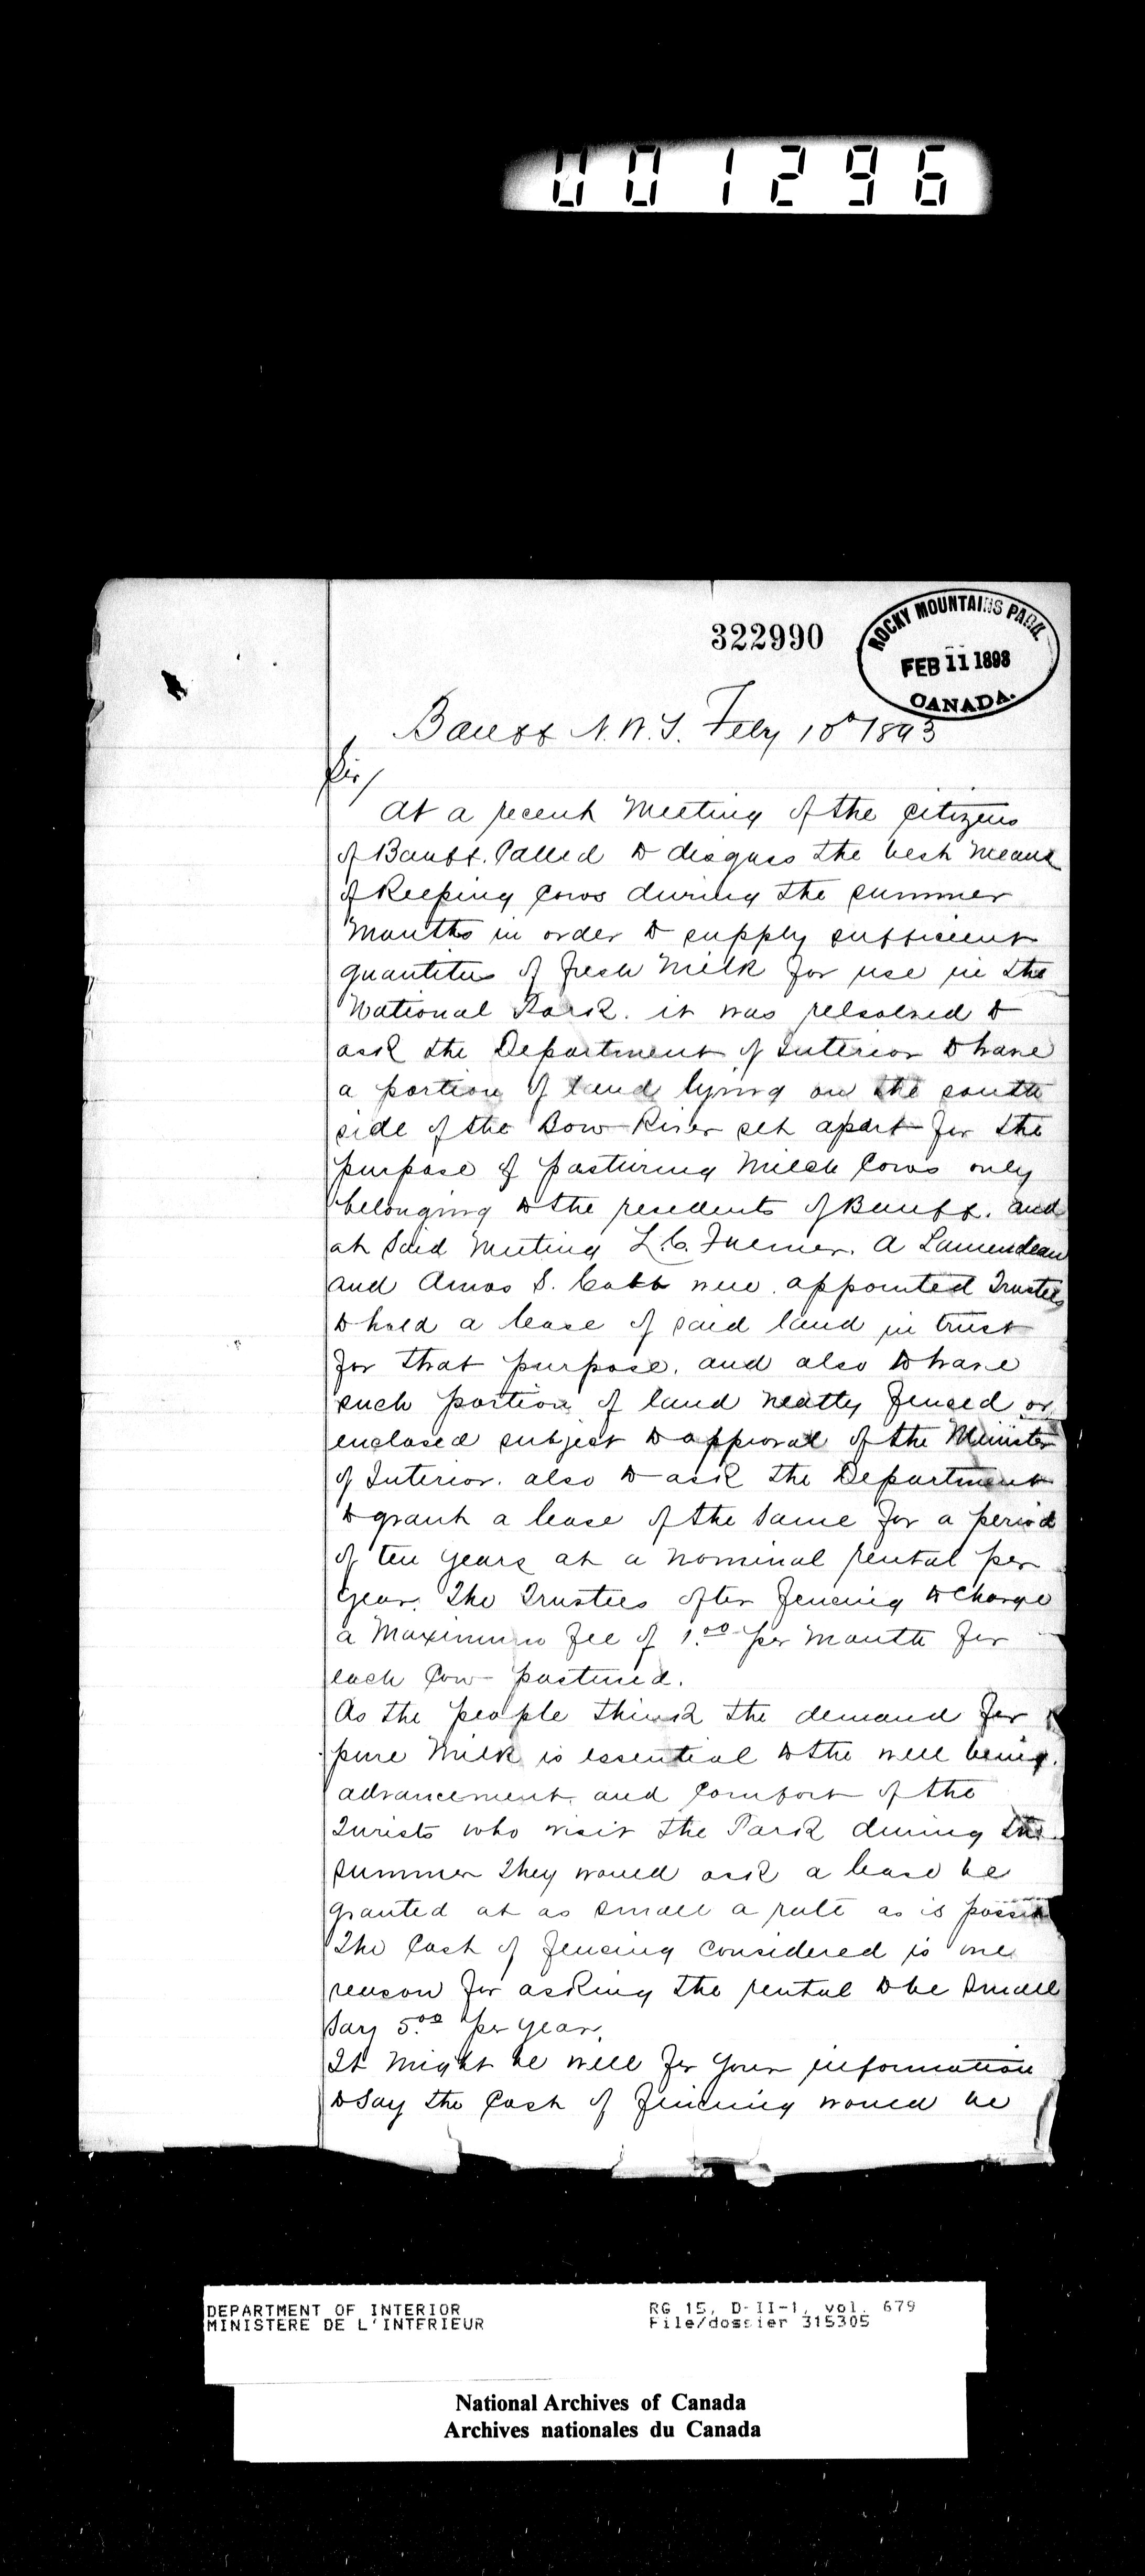 001296
322990
ROCKY MOUNTAINS PARK
FEB 11 1893
CANADA.
Banff N.W.T. Feby 10th 1893
Sir/
At a recent Meeting of the citizens
of Banff. Called to disquss the best Means
of Keeping Cows during the summer
Months in order to supply sufficient
quantitus of fresh Milk for use in the
National Park. it was relsolved to
ask the Department of Interior to have
a portion of land lying on the south
side of the Bow River set apart for the
purpose of pasturing Milch Cows only
belonging to the residents of Banff. and
at said Meeting L.C. Fulmer. A Lamendeau
and Amos S. Cobb were appointed Trustees
to hold a lease of said land in trust
for that purpose. and also to have
such portion of land neatly fenced or
enclosed subject to approval of the Minister
of Interior. also to ask the Department
to grant a lease of the same for a period
of ten years at a nominal rental per
year. The Trustees after fencing to charge
a Maximum fee of 1.00 per Month for
each Cow pastured.
As the people think the demand for
pure Milk is essential to the well being.
advancement and Comfort of the
Turists who visit the Park during the
summer They would ask a lease be
granted at as small a rate as is
The Cost of fencing Considered is one
reason for asking the rental to be small
say 5.00 per year.
It Might be well for your information
to say the Cost of fencing would be
DEPARTMENT OF INTERIOR
MINISTERE DE L'INTERIEUR
RG 15, D-II-1, vol. 679
File/dossier 315305
National Archives of Canada
Archives nationales du Canada